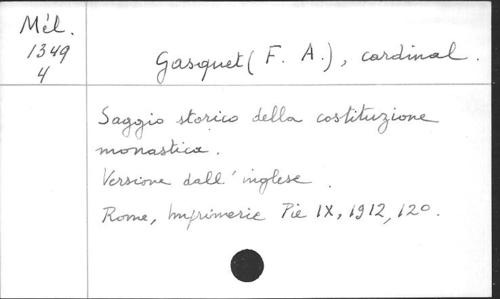 Mél.
1349
4
Gasquet (F. A.), cardinal.
Saggio storico della costituzione
monastica.
Versione dall'inglese.
Rome, Imprimerie Pie IX, 1912, 120.